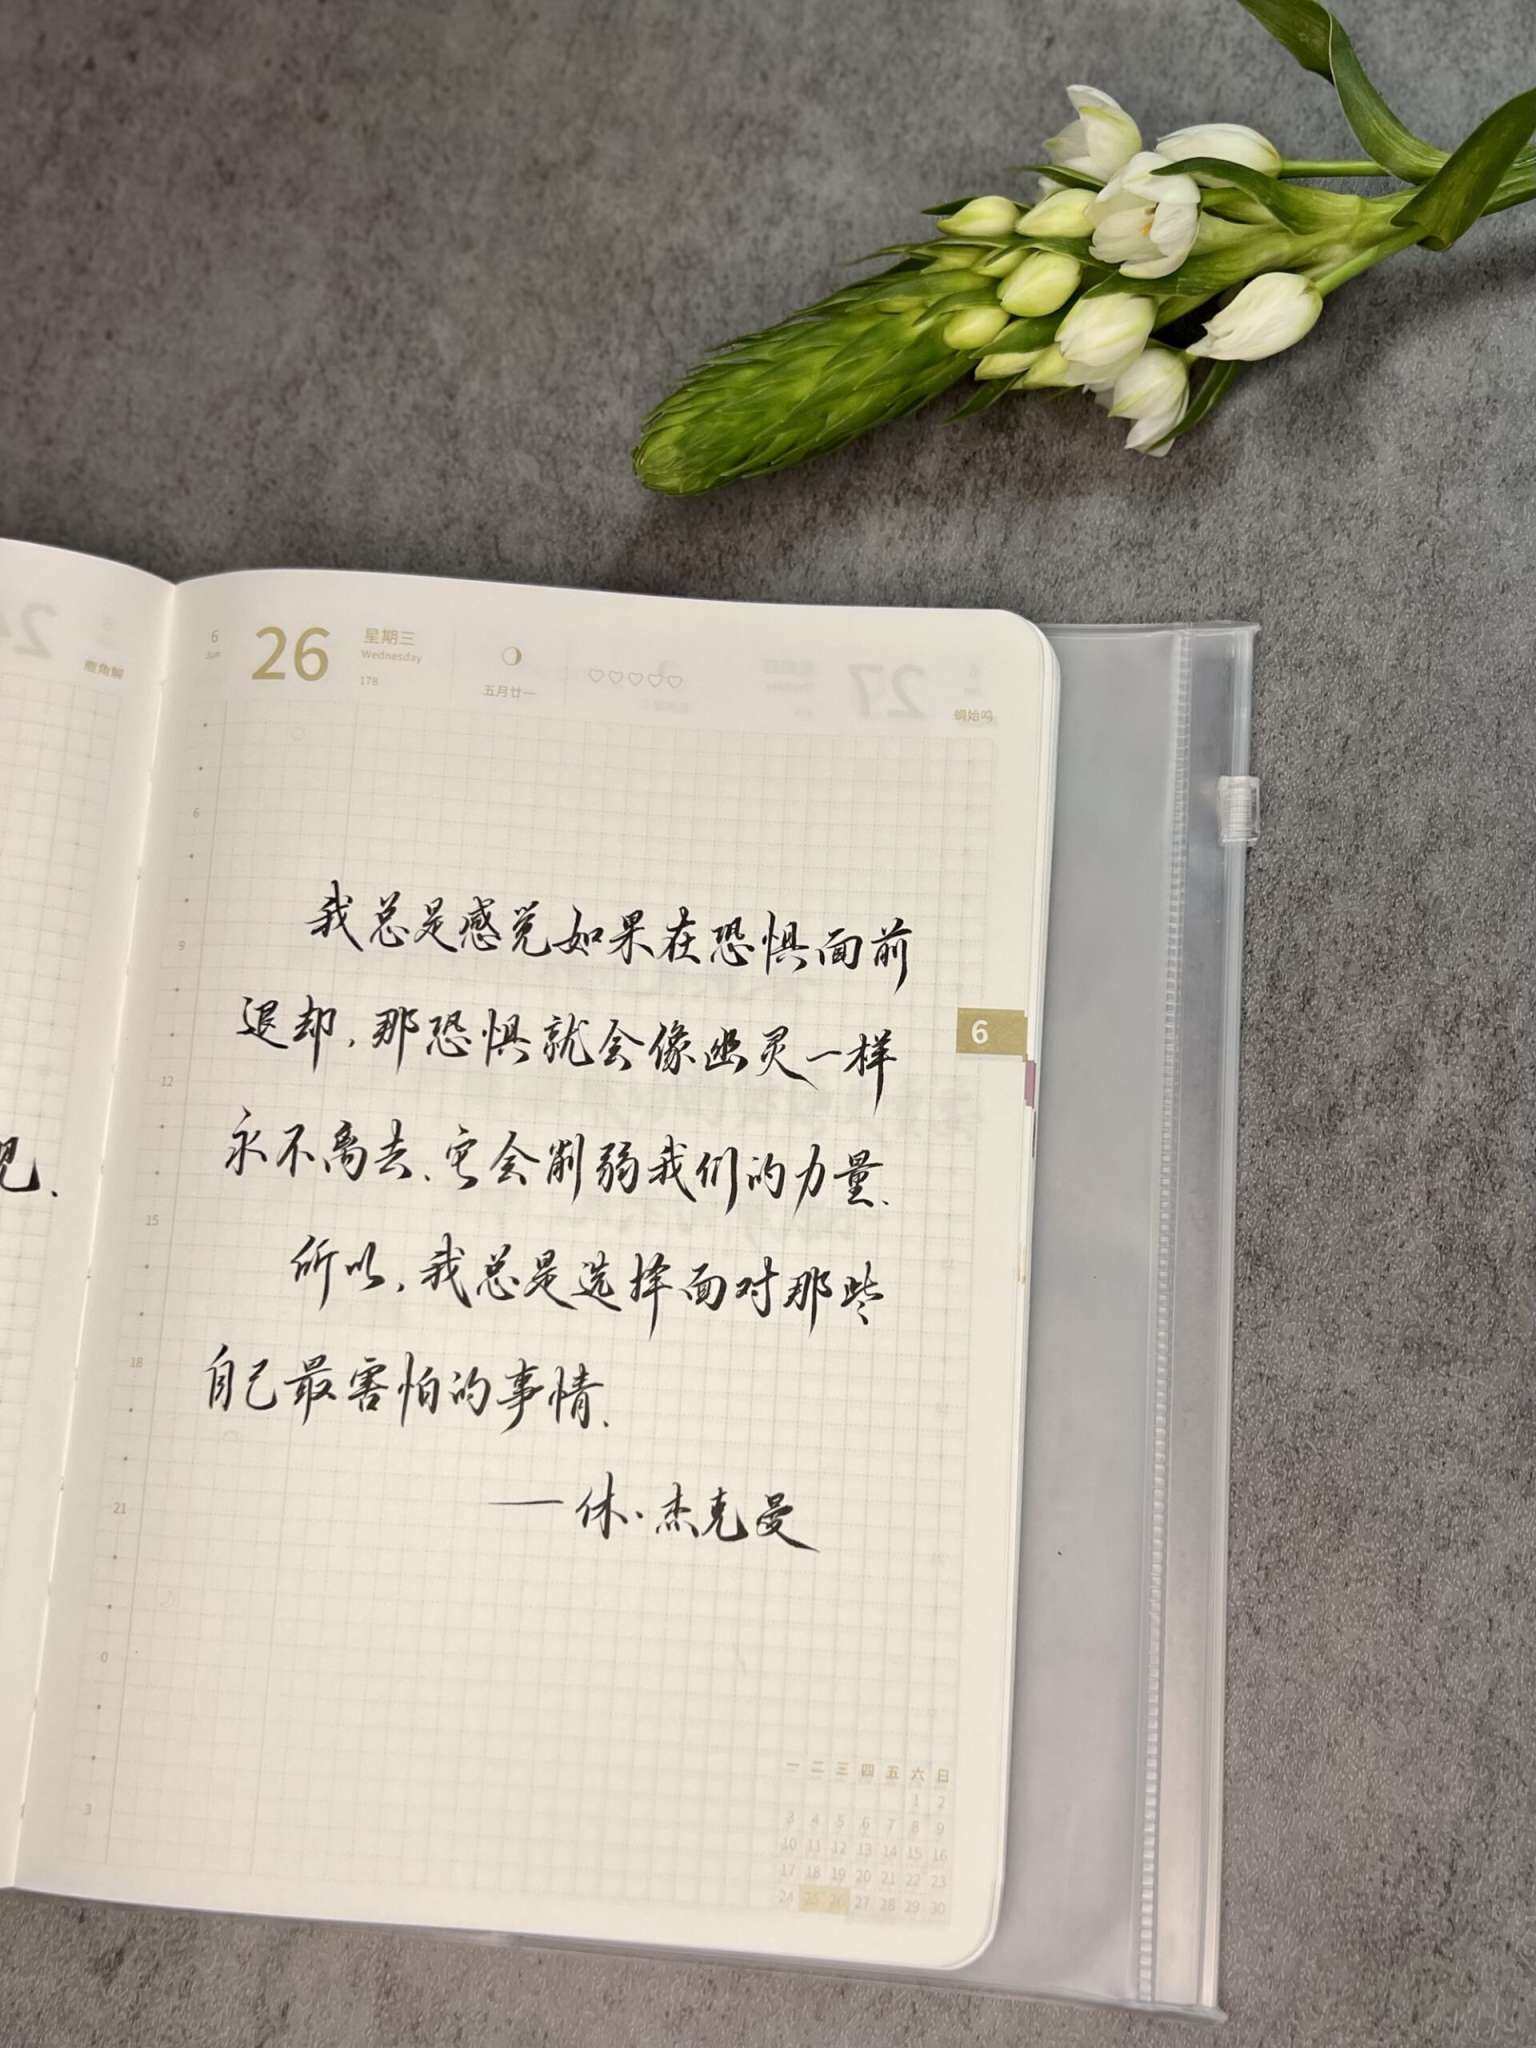 6 26 星期三
Jun Wednesday
178 五月廿一
蜩始鸣
鹿角解
24
27
6
9
12
15
18
21
0
3
6
我总是感觉如果在恐惧面前
退却,那恐惧就会像幽灵一样
永不离去、它会削弱我们的力量.
所以,我总是选择面对那些
自己最害怕的事情.
——休·杰克曼
见.
一 二 三 四 五 六 日
1 2
3 4 5 6 7 8 9
10 11 12 13 14 15 16
17 18 19 20 21 22 23
24 25 26 27 28 29 30